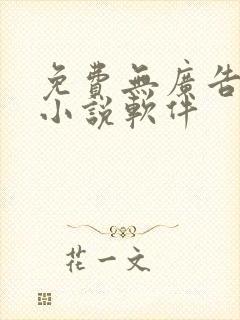 免費無廣告
小說軟件
花一文